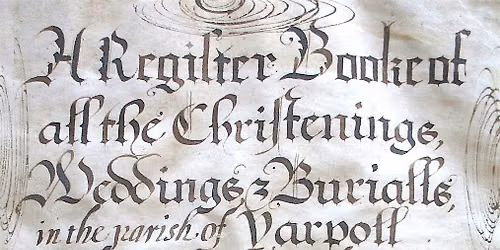 A Register Booke of
all the Christenings,
Weddings & Burialls,
in the parish of Yarpoll